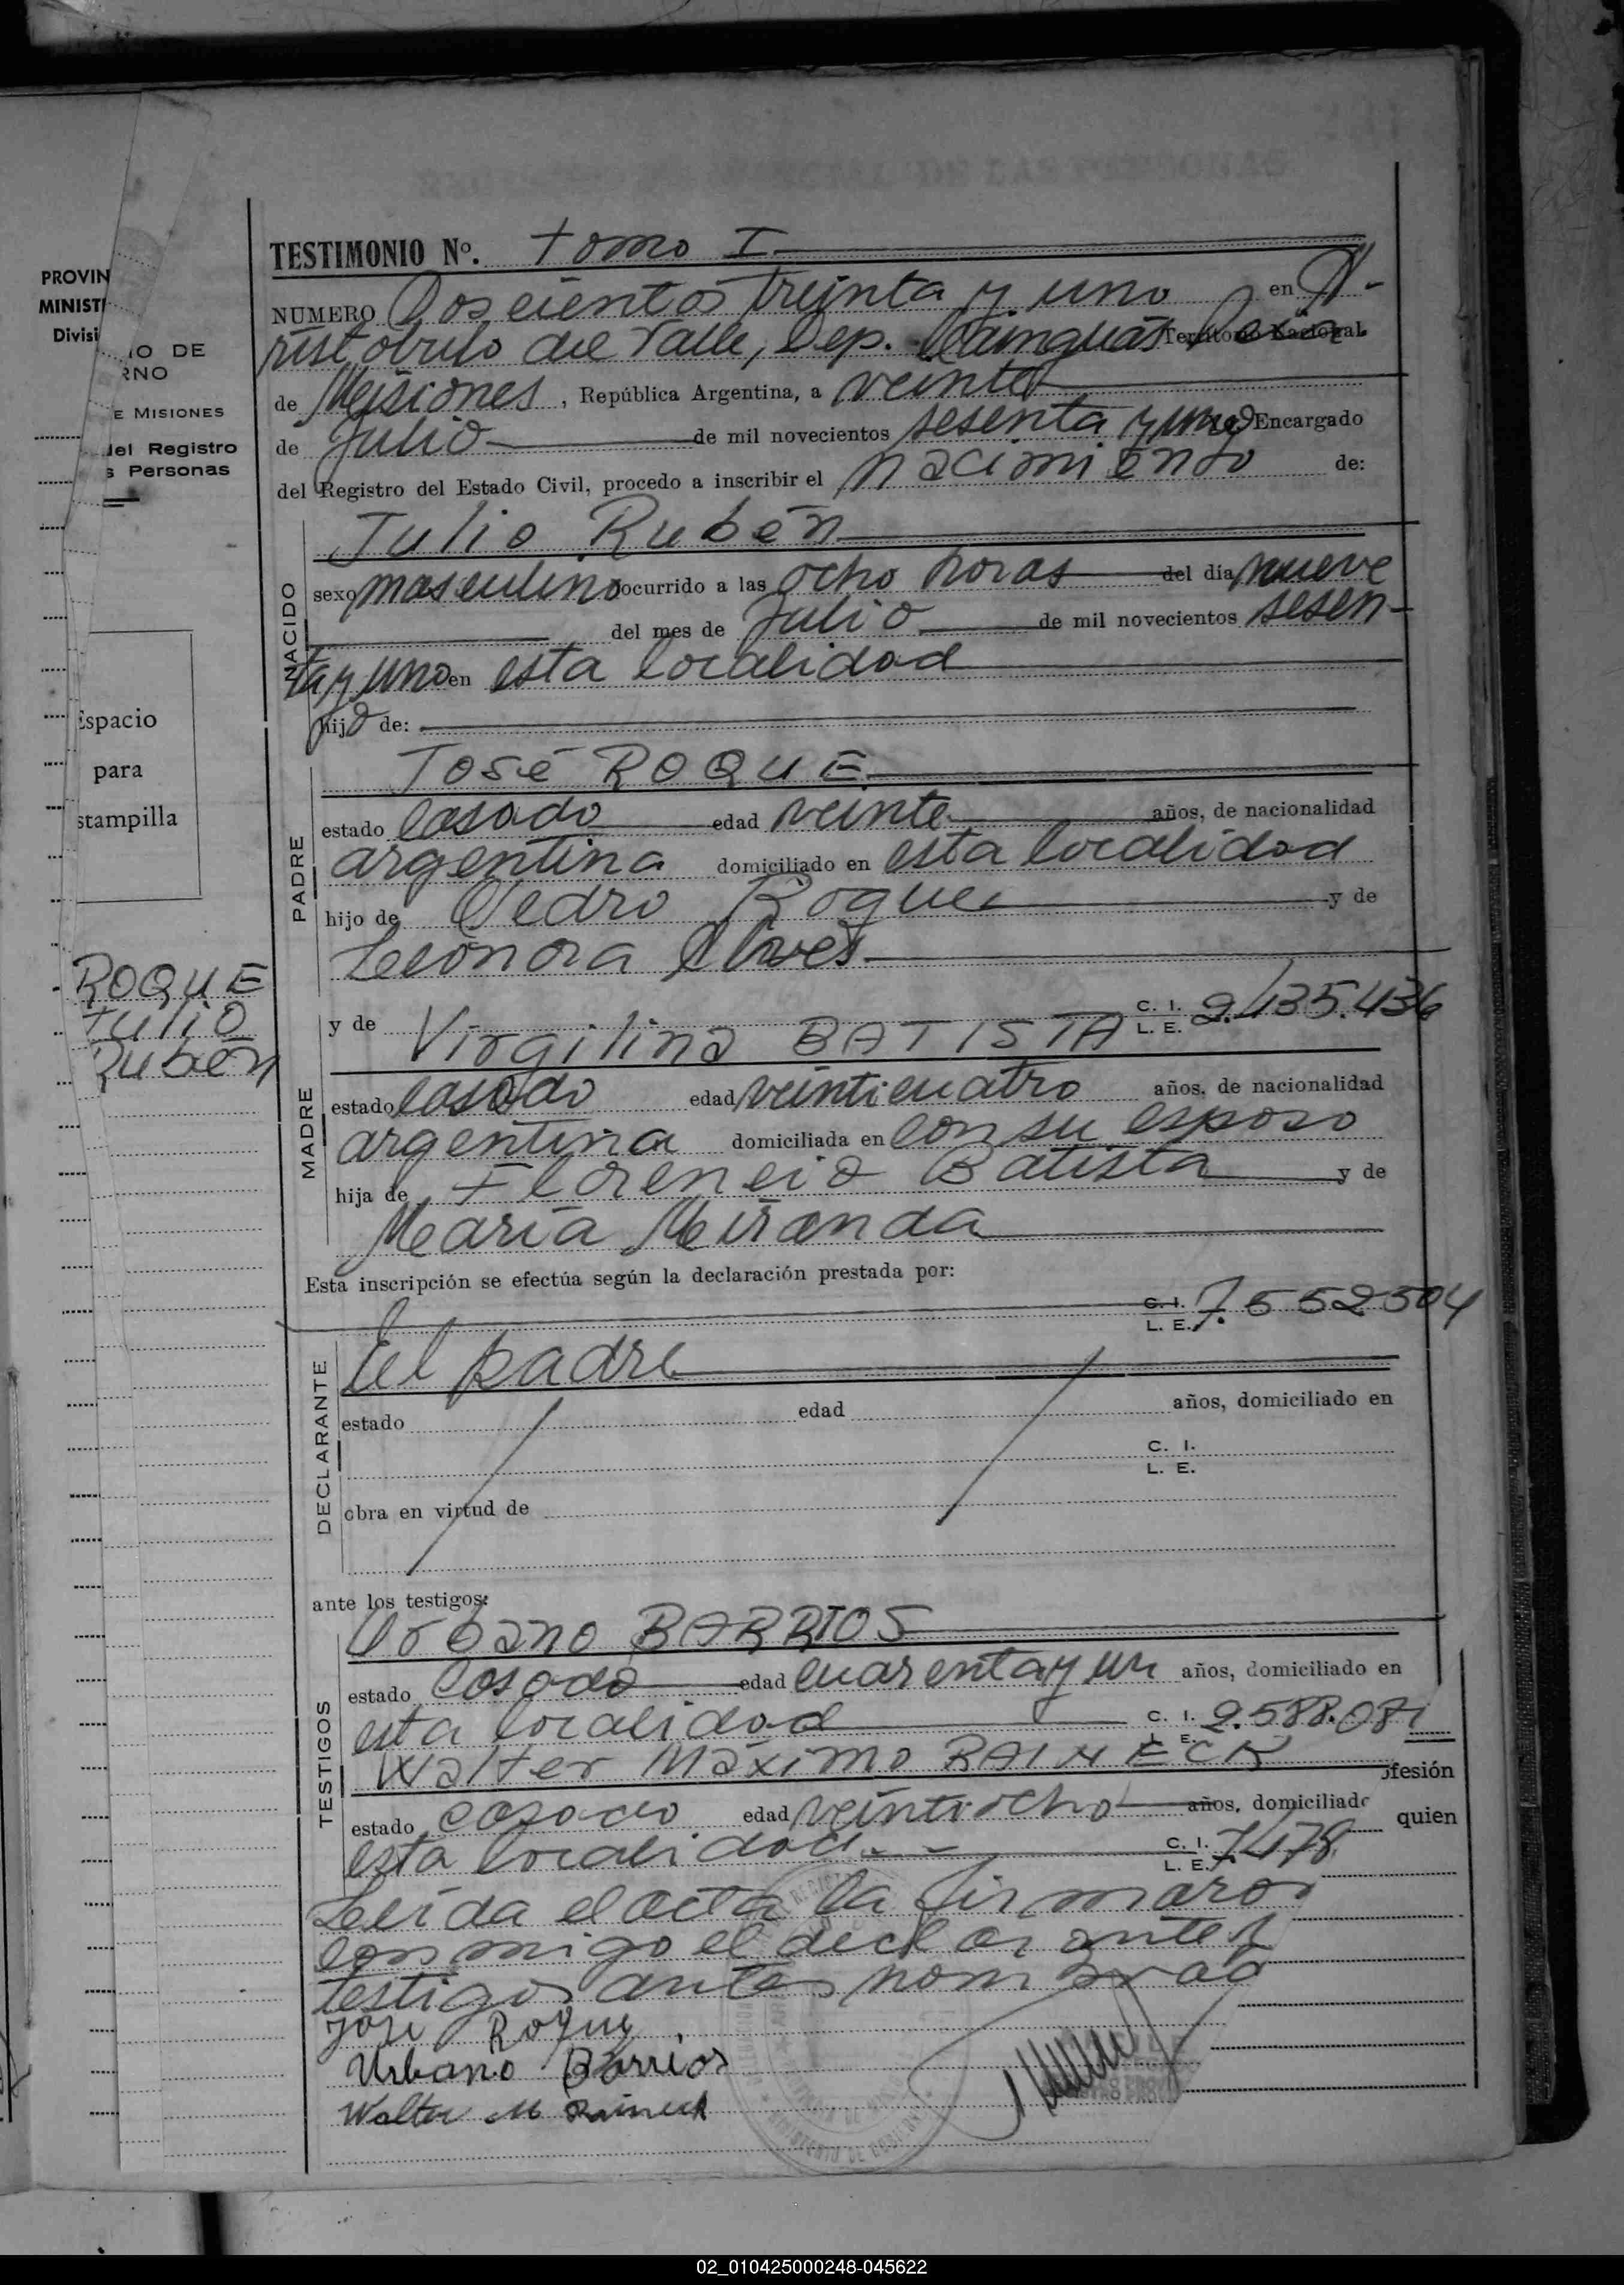 PROVIN
MINISTI
Divisi
IO DE
RNO
E MISIONES
del Registro
s Personas
Espacio
para
stampilla
ROQUE
Julio
Rubén
TESTIMONIO Nº. tomo I
NUMERO Doscientos treinta y uno en A-
ristóbulo del Valle, Dep. Cainguás Territorio Nacional
de Misiones, República Argentina, a veinte
de Julio de mil novecientos sesenta y uno Encargado
del Registro del Estado Civil, procedo a inscribir el nacimiento de:
Julio Rubén
NACIDO
sexo masculino ocurrido a las ocho horas del día nueve
del mes de Julio de mil novecientos sesen-
ta y uno en esta localidad
hijo de:
José ROQUE
PADRE
estado casado edad veinte años, de nacionalidad
argentina domiciliado en esta localidad
hijo de Pedro Roque y de
Leonora
y de Virgilina BATISTA C. I. L. E. 2.435.436
MADRE
estado casado edad veinticuatro años, de nacionalidad
argentina domiciliada en con su esposo
hija de Florencio Batista y de
María Miranda
Esta inscripción se efectúa según la declaración prestada por:
C. I. L. E. 7.552504
El padre
DECLARANTE
estado edad años, domiciliado en
C. I.
L. E.
obra en virtud de
ante los testigos:
Urbano BARRIOS
TESTIGOS
estado casado edad cuarenta y un años, domiciliado en
esta localidad C. I. L. E. 2.588.081
Walter Máximo RAINECK
ofesión
estado casado edad veintiocho años, domiciliado
quien
esta localidad C. I. L. E. 7.478
Leída el acta la firmaron
conmigo el declarante y
testigos antes nombrad
José Roque
Urbano Barrios
Walter M Raineck
02_010425000248-045622